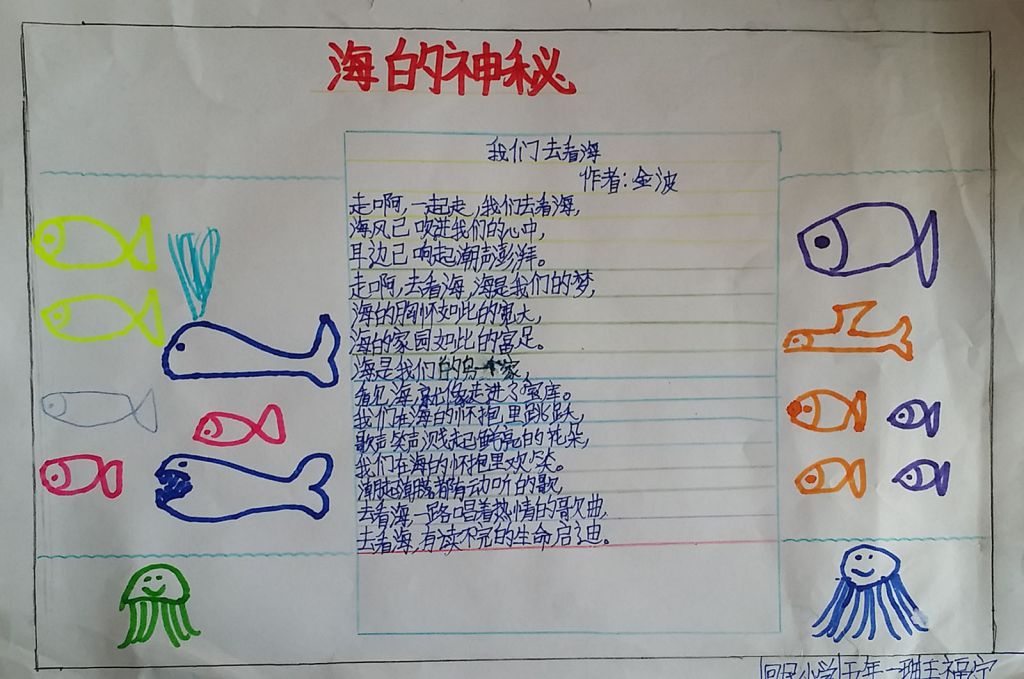 海的神秘
我们去看海
作者:金波
走啊,一起走,我们去看海,
海风已吹进我们的心中,
耳边已响起潮声澎湃。
走啊,去看海,海是我们的梦,
海的胸怀如此的宽大,
海的家园如此的富足。
海是我们的另一个家,
看见海,就像走进了宝库。
我们在海的怀抱里跳跃,
歌声笑声溅起鲜亮的花朵,
我们在海的怀抱里欢笑。
潮起潮落都有动听的歌,
去看海,一路唱着热情的歌曲,
去看海,有读不完的生命启迪。
回民小学五年一班王福宁